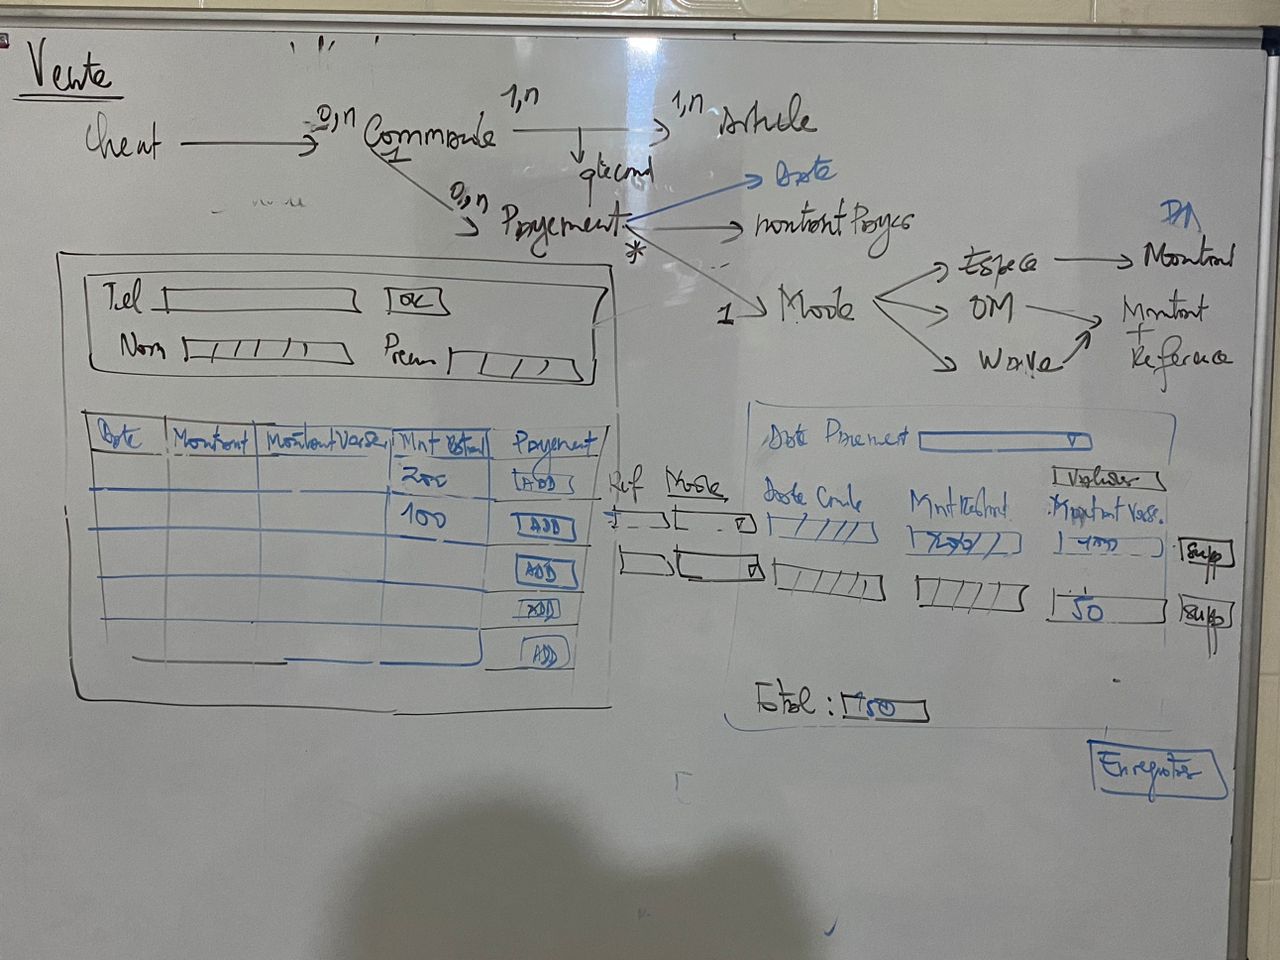 Vente
Client 0,n Commande 1,n 1,n Article
1 qtecmd
0,n Payement Date
* montantPayes
1 Mode Espece Montant
OM Montant
+
Wave Reference
Tel OK
Nom Prenom
Date Montant MontantVerse Mnt Restant Payement
200 ADD
100 ADD
ADD
ADD
ADD
Date Paiement
Valider
Ref Mode Date Cmde Mnt Restant Montant Verse.
200 100 Supp
50 Supp
Total : 150
Enregistrer